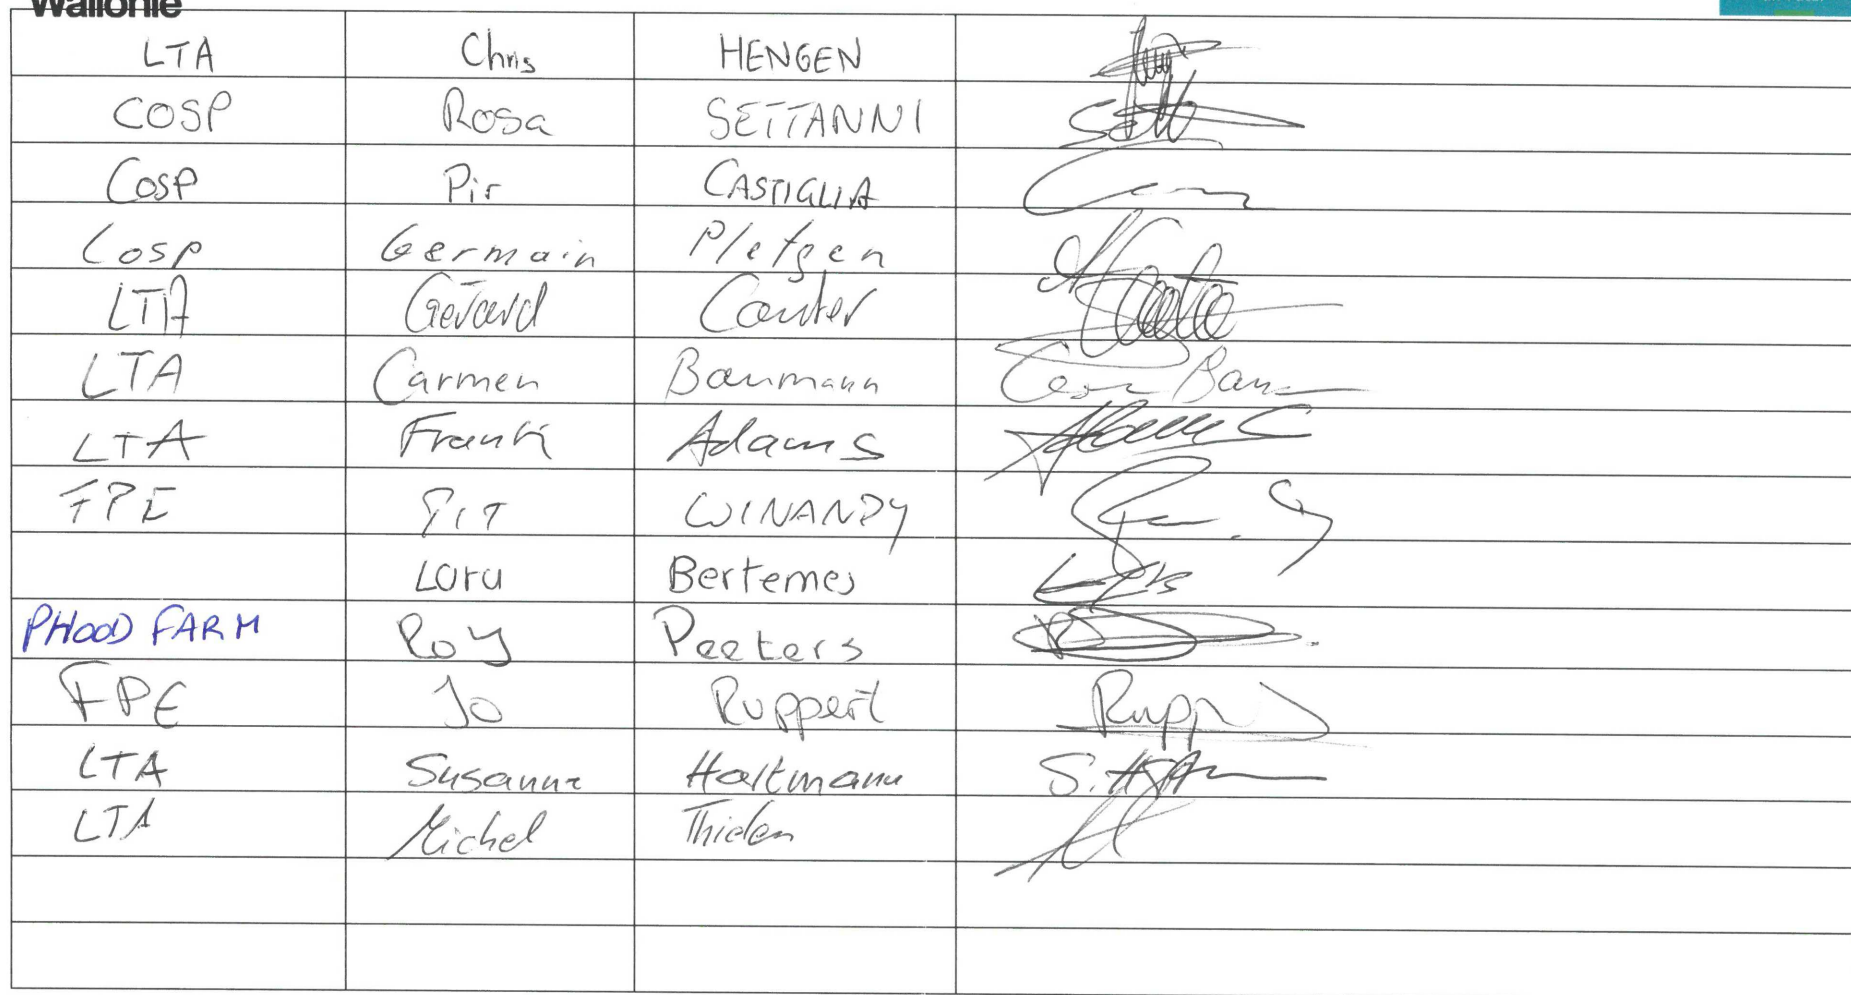 Wallonie
LTA Chris HENGEN
COSP Rosa SETTANNI
COSP Pir CASTIGLIA
Cosp Germain Pletgen
LTA Gérard Conter
LTA Carmen Baumann
LTA Frank Adams
FPE PIT WINANDY
Lara Bertemes
PHOOD FARM Roy Peeters
FPE Jo Ruppert
LTA Susanne Hartmann
LTA Michel Thielen